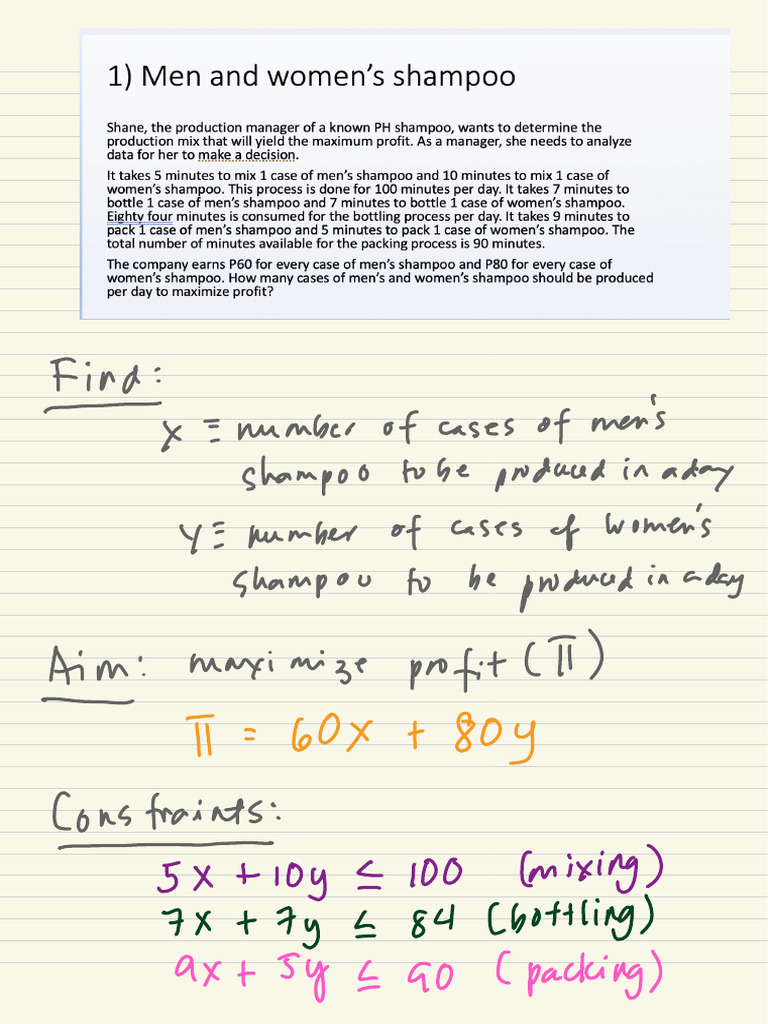 1) Men and women's shampoo
Shane, the production manager of a known PH shampoo, wants to determine the
production mix that will yield the maximum profit. As a manager, she needs to analyze
data for her to make a decision.
It takes 5 minutes to mix 1 case of men's shampoo and 10 minutes to mix 1 case of
women's shampoo. This process is done for 100 minutes per day. It takes 7 minutes to
bottle 1 case of men's shampoo and 7 minutes to bottle 1 case of women's shampoo.
Eighty four minutes is consumed for the bottling process per day. It takes 9 minutes to
pack 1 case of men's shampoo and 5 minutes to pack 1 case of women's shampoo. The
total number of minutes available for the packing process is 90 minutes.
The company earns P60 for every case of men's shampoo and P80 for every case of
women's shampoo. How many cases of men's and women's shampoo should be produced
per day to maximize profit?
Find:
x ≡ number of cases of men's
shampoo to be produced in a day
y ≡ number of cases of women's
shampoo to be produced in a day
Aim: maximize profit (π)
π = 60x + 80y
Constraints:
5x + 10y ≤ 100 (mixing)
7x + 7y ≤ 84 (bottling)
9x + 5y ≤ 90 (packing)